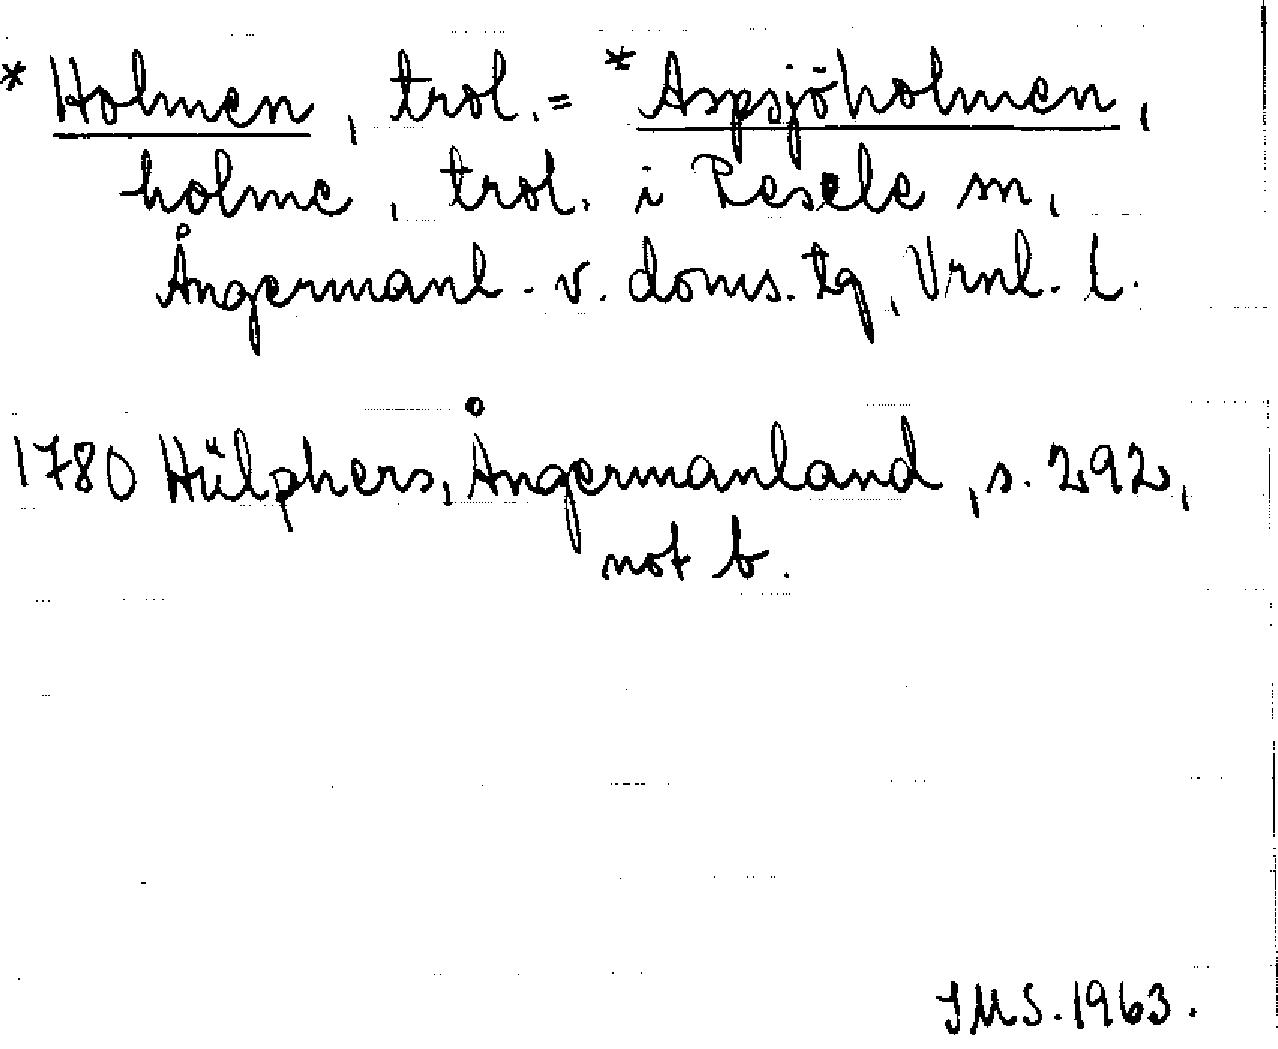 * Holmen, trol. = * Aspsjöholmen,
holme, trol. i Resele sn,
Ångermanl. v. doms. tg, Vrnl. l.
1780 Hülphers, Ångermanland, s. 292,
not b.
IMS. 1963.